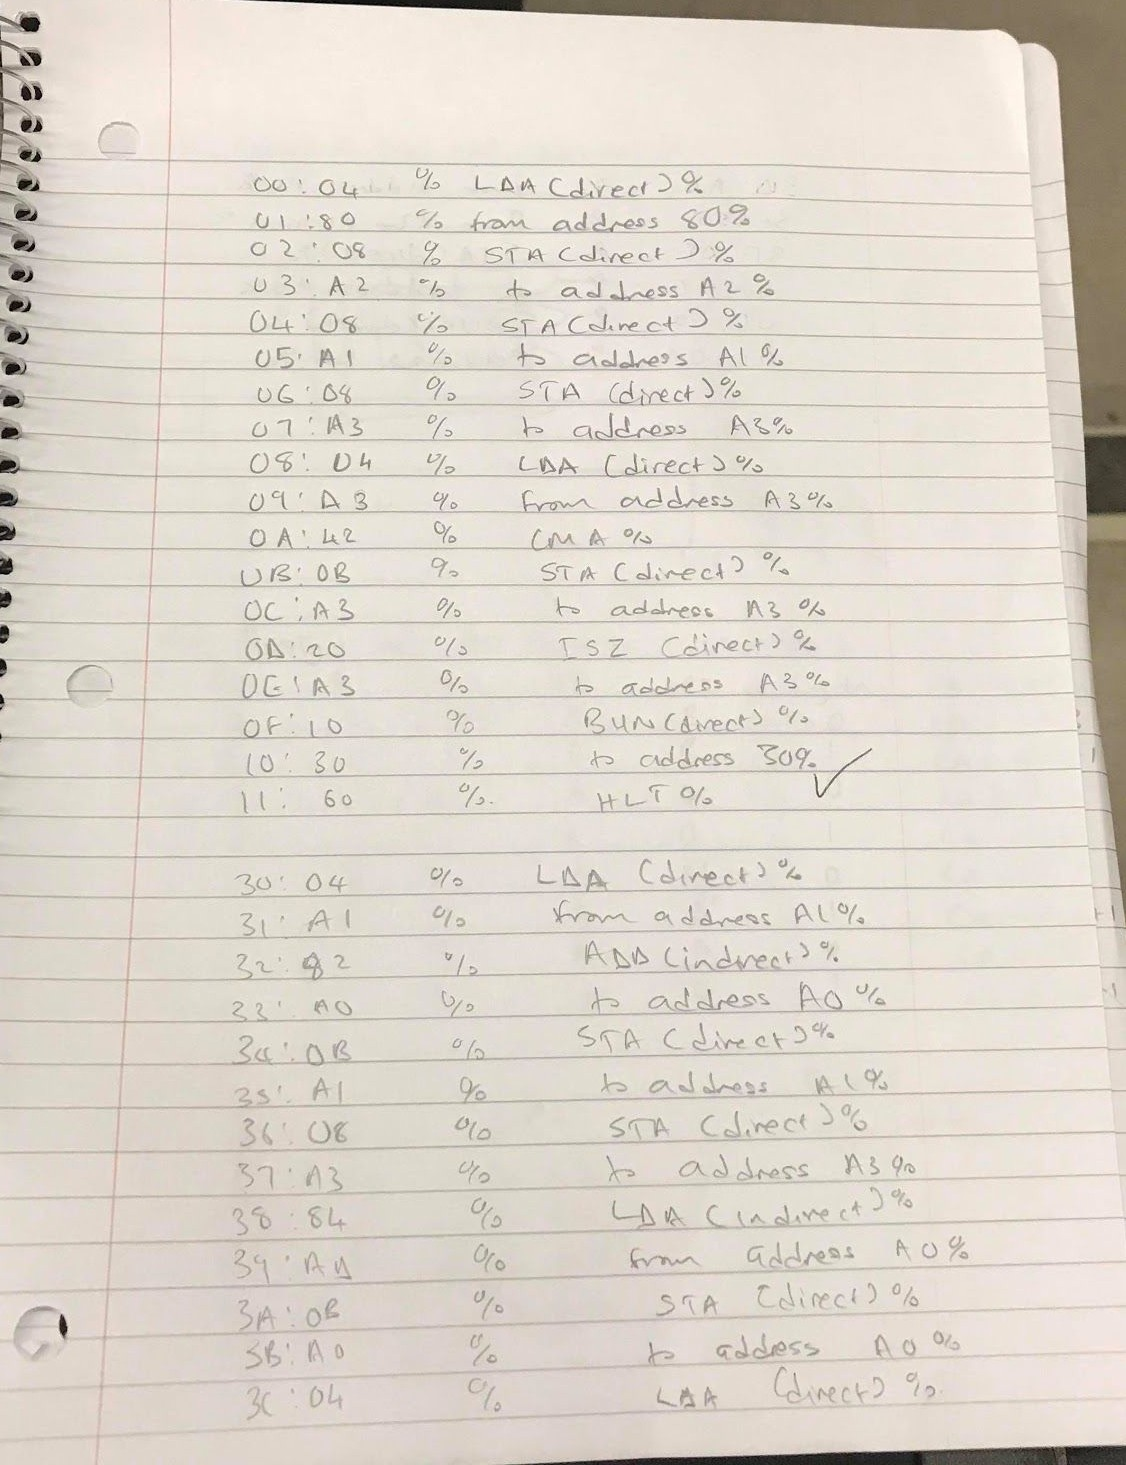 00:04 % LDA (direct) %
01:80 % from address 80%
02:08 % STA (direct) %
03:A2 % to address A2 %
04:08 % STA (direct) %
05:A1 % to address A1 %
06:08 % STA (direct) %
07:A3 % to address A3%
08:04 % LDA (direct) %
09:A3 % from address A3%
0A:42 % CMA %
0B:0B % STA (direct) %
0C:A3 % to address A3 %
0D:20 % ISZ (direct) %
0E:A3 % to address A3%
0F:10 % BUN (direct) %
10:30 % to address 30%
11:60 % HLT %
30:04 % LDA (direct) %
31:A1 % from address A1%
32:82 % ADD (indirect) %
33:A0 % to address A0 %
34:0B % STA (direct) %
35:A1 % to address A1%
36:08 % STA (direct) %
37:A3 % to address A3 %
38:84 % LDA (indirect) %
39:A0 % from address A0%
3A:0B % STA (direct) %
3B:A0 % to address A0 %
3C:04 % LDA (direct) %